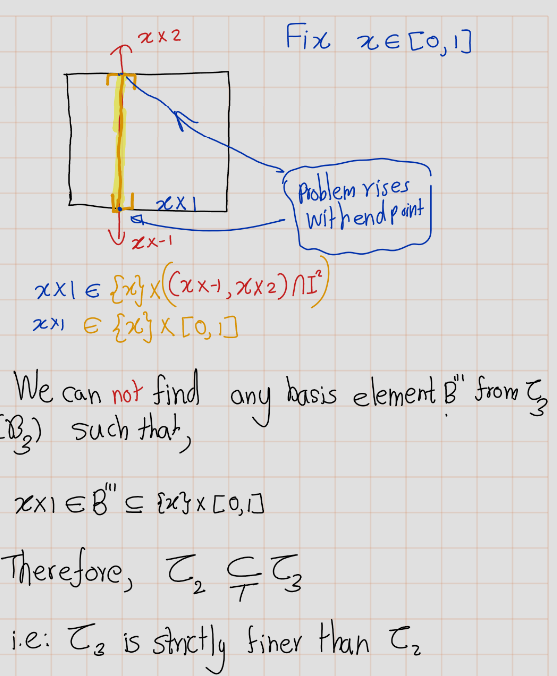 x×2
Fix x ∈ [0,1]
Problem rises
with end point
x×1
x×-1
x×1 ∈ {x}×((x×-1, x×2) ∩ I²)
x×1 ∈ {x}×[0,1]
We can not find any basis element B''' from τ₃
(B₃) such that,
x×1 ∈ B''' ⊆ {x}×[0,1]
Therefore, τ₂ ⊊ τ₃
i.e: τ₃ is strictly finer than τ₂